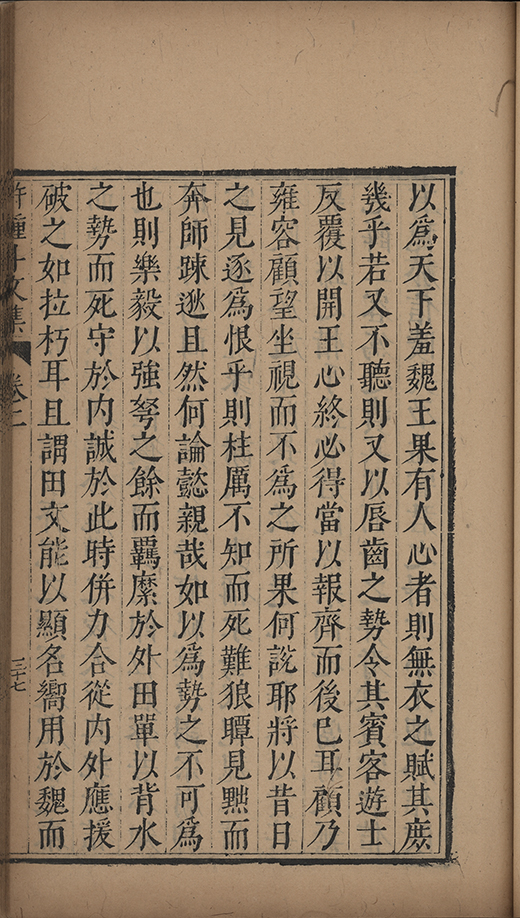 以為天下羞魏王果有人心者則無衣之賦其庶
幾乎若又不聽則又以唇齒之勢令其賓客遊士
反覆以開王心終必得當以報齊而後已耳顧乃
雍容顧望坐視而不為之所果何說耶將以昔日
之見逐為恨乎則柱厲不知而死難狼瞫見黜而
奔師踈逖且然何論懿親哉如以為勢之不可為
也則樂毅以強弩之餘而羈縻於外田單以背水
之勢而死守於内誠於此時併力合從内外應援
破之如拉朽耳且謂田文能以顯名嚮用於魏而
許鍾斗文集 卷二 三十七